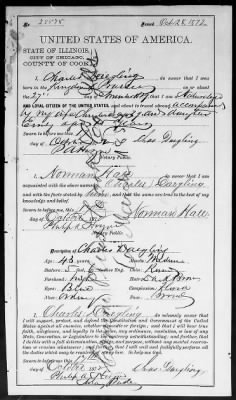 Issued Oct 28, 1872
UNITED STATES OF AMERICA.
STATE OF ILLINOIS,
CITY OF CHICAGO,
COUNTY OF COOK,
I, Charles Daegling do swear that I was
born in the Kingdom of Prussia
on 27th
AND LOYAL CITIZEN OF THE UNITED STATES, and about to travel abroad, accompanied
by my wife
Sworn to before me this
day of
Chas Daegling
Notary Public.
I, Norman Kall do swear that I am
acquainted with the above named Charles Daegling
and with the facts stated by him, and that the same are true to the best of my knowledge
and belief.
Sworn to before me this
day of October 1872
Norman Kall
Philip A. Hoyne
Notary Public.
Description of Charles Daegling
Age: 43 years
Mouth: Medium
Stature: 5 feet inches Eng.
Chin: Round
Forehead: High
Hair:
Eyes: Blue
Complexion: Florid
Nose:
Face:
I, Charles Daegling do solemnly swear that I
will support, protect, and defend the Constitution and Government of the United
States against all enemies, whether domestic or foreign; and that I will bear true
faith, allegiance, and loyalty to the same, any ordinance, resolution, or law of any
State, Convention, or Legislature to the contrary notwithstanding; and further, that
I do this with a full determination, pledge, and purpose, without any mental reservation
or evasion whatsoever; and, further, that I will well and faithfully perform all
the duties which may be required of me by law. So help me God.
Sworn to before me this
day of October 1872
Chas Daegling
Philip A. Hoyne
Notary Public.